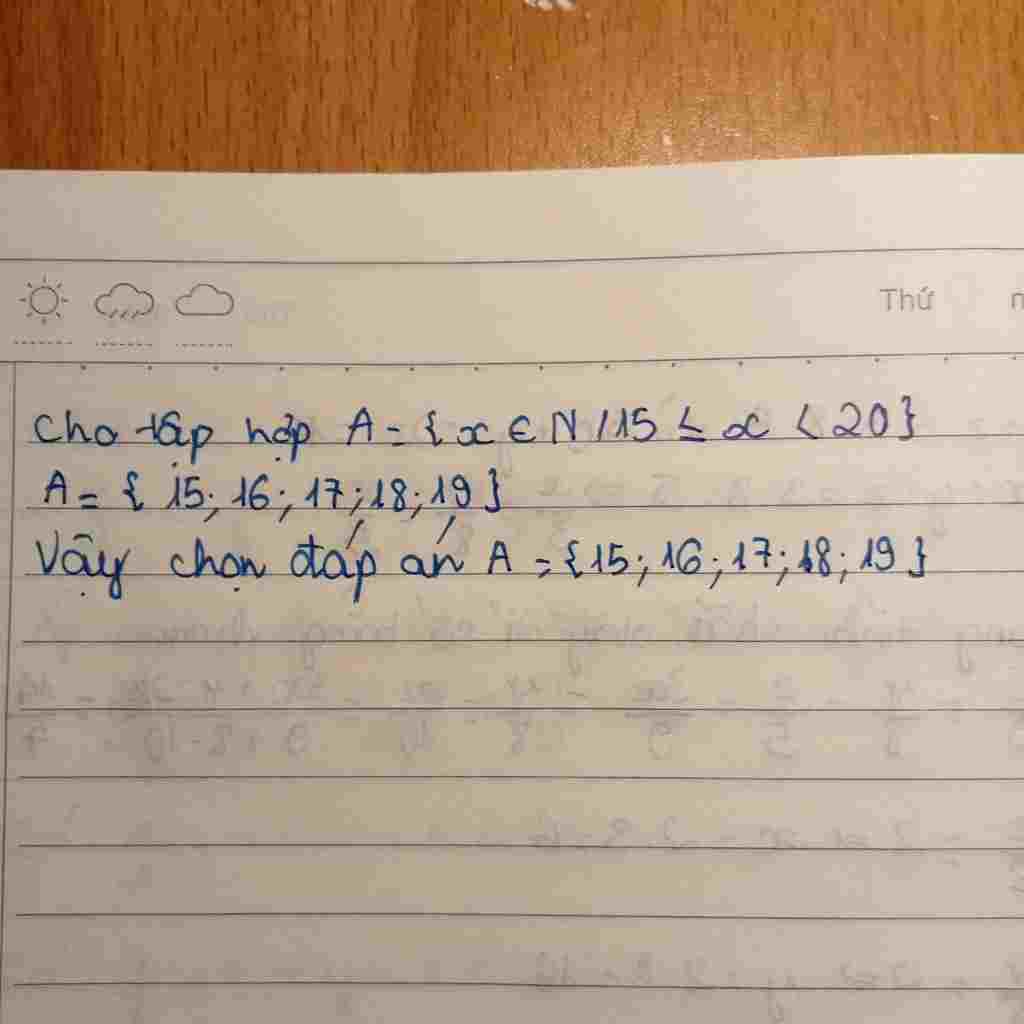 Thứ
Cho tập hợp A = {x ∈ N / 15 ≤ x < 20}
A = { 15; 16; 17; 18; 19}
Vậy chọn đáp án A = {15; 16; 17; 18; 19}